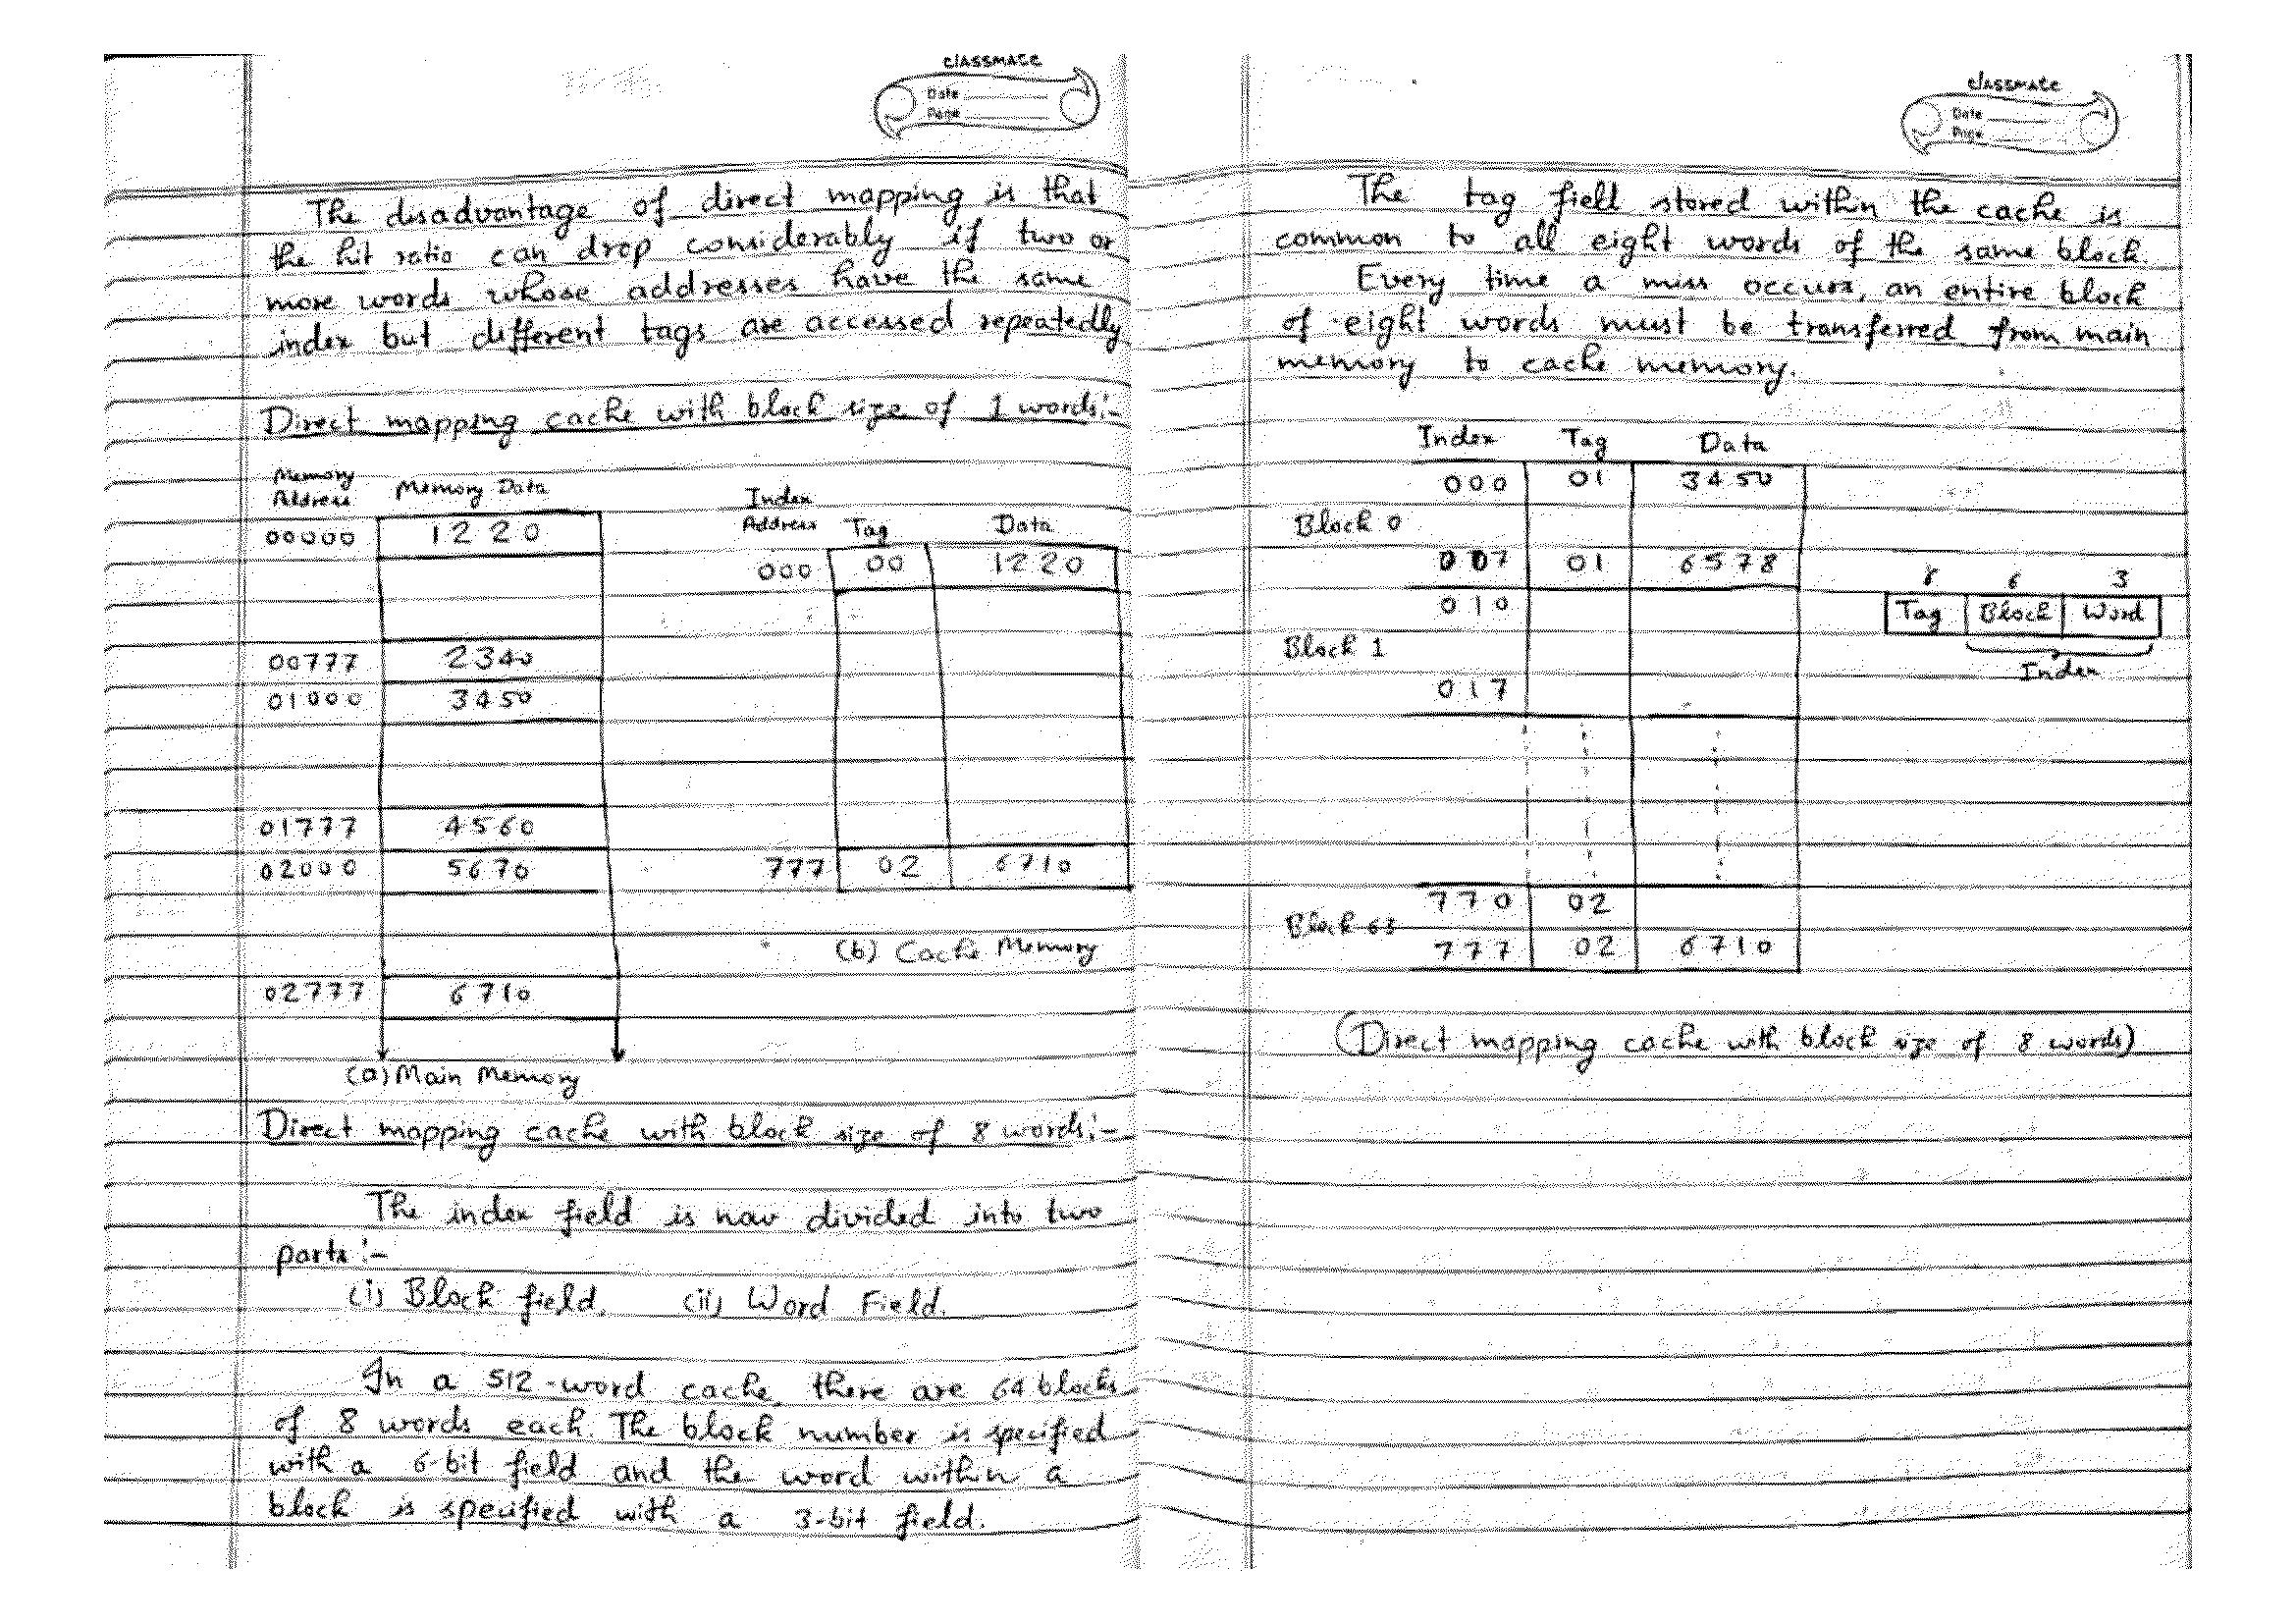 classmate
Date
Page
The disadvantage of direct mapping is that
the hit ratio can drop considerably if two or
more words whose addresses have the same
index but different tags are accessed repeatedly
Direct mapping cache with block size of 1 words:-
Memory Address Memory Data
00000 1220
00777 2340
01000 3450
01777 4560
02000 5670
02777 6710
(a) Main Memory
Index Address Tag Data
000 00 1220
777 02 6710
(b) Cache Memory
Direct mapping cache with block size of 8 words:-
The index field is now divided into two
parts:-
(i) Block field. (ii) Word Field.
In a 512-word cache, there are 64 blocks
of 8 words each. The block number is specified
with a 6-bit field and the word within a
block is specified with a 3-bit field.
classmate
Date
Page
The tag field stored within the cache is
common to all eight words of the same block.
Every time a miss occurs, an entire block
of eight words must be transferred from main
memory to cache memory.
Index Tag Data
000 01 3450
Block 0
007 01 6578
010
Block 1
017
770 02
Block 63
777 02 6710
6 3
Tag Block Word
Index
(Direct mapping cache with block size of 8 words)